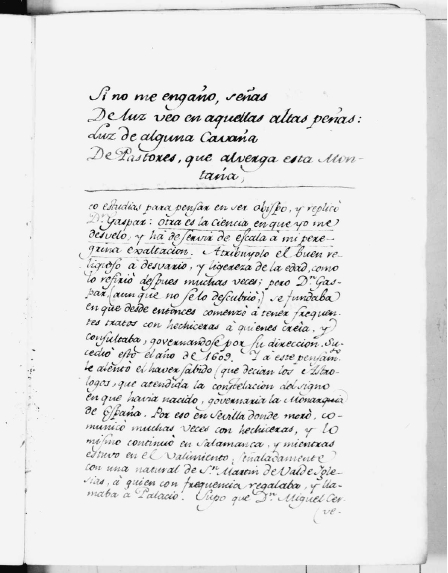 Si no me engaño, señas
De luz veo en aquellas altas peñas:
Luz de alguna Cavaña
De Pastores, que alverga esta Mon-
taña,
co estudias para pensar en ser obispo, y replicó
Dn. Gaspar: otra es la ciencia en que yo me
desvelo, y ha de servir de escala á mi pere-
grina exaltacion. Atribuyolo el buen re-
ligioso á desvario, y ligereza de la edad, como
lo refirió despues muchas veces; pero Dn. Gas-
par (aunque no se lo descubrió) se fundaba
en que desde entonces comenzó á tener frequen-
tes tratos con hechiceras á quienes creia, y
consultaba, governandose por su direccion. Su-
cedió esto el año de 1609. Y á este pensam.
le alentó el haver sabido (que decian los Astro-
logos, que atendida la constelacion del signo
en que havia nacido, governaria la Monarquia
de España. Por eso en Sevilla donde moró, co-
municó muchas veces con hechiceras, y lo
mismo continuó en Salamanca, y mientras
estuvo en el Valimiento; señaladamente
con una natural de Sn. Martin de Valde Igle-
sias, á quien con frequencia regalaba, y lla-
maba a Palacio. Supo que Dn. Miguel Cer-
(ve-